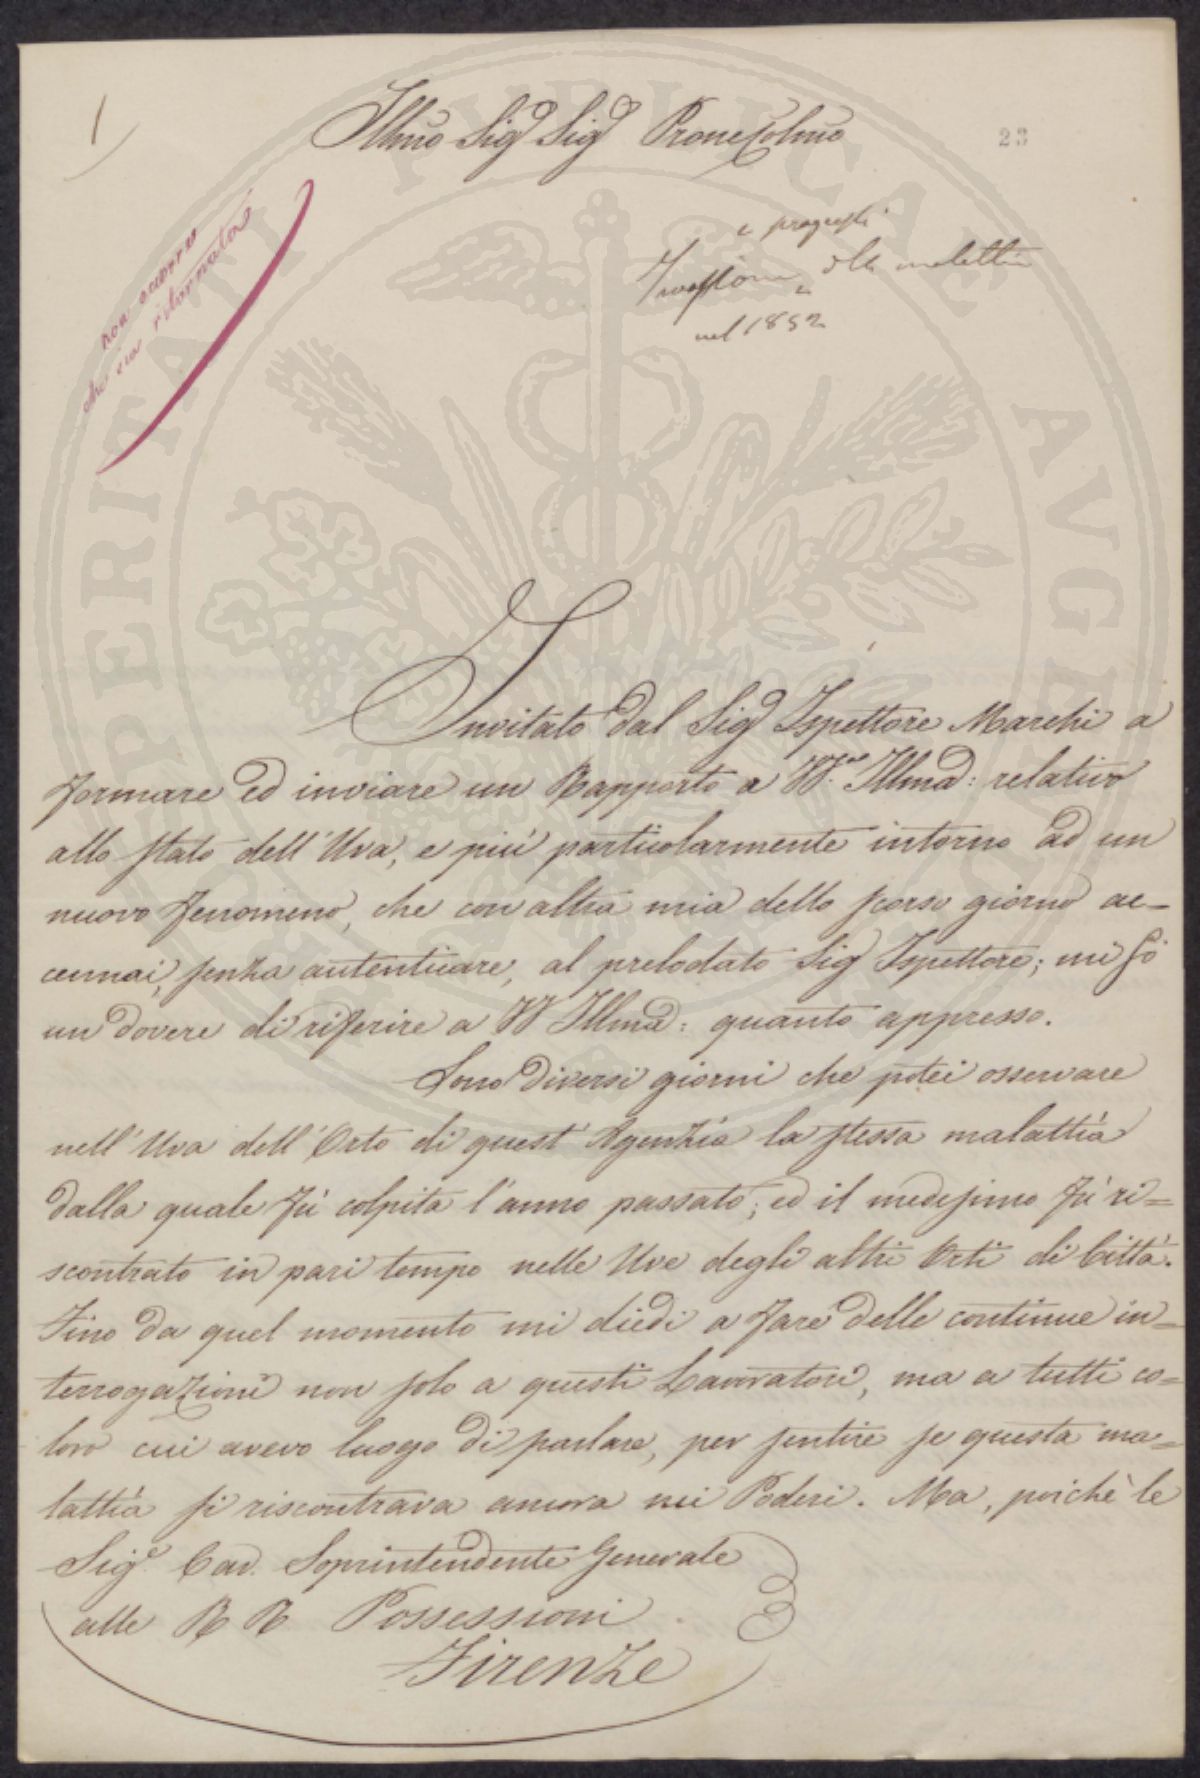 1
Illmo Sigr Sigr Prone Colmo
23
non sembra
che sia ritornata
e progressi
Invasione della malattia
nel 1852
Invitato dal Sigr Ispettore Marchi a
formare ed inviare un Rapporto a VS. Illma: relativo
allo stato dell'Uva, e più particolarmente intorno ad un
nuovo fenomeno, che con altra mia dello scorso giorno ac=
cennai, senza autenticare, al prelodato Sigr Ispettore; mi fò
un dovere di riferire a VS Illma: quanto appresso.
Sono diversi giorni che potei osservare
nell'Uva dell'Orto di quest'Agenzia la stessa malattia
dalla quale fù colpita l'anno passato; ed il medesimo fù ri=
scontrato in pari tempo nelle Uve degli altri Orti di Città.
Fino da quel momento mi diedi a fare delle continue in=
terrogazioni non solo a questi Lavoratori, ma a tutti co=
loro cui avevo luogo di parlare, per sentire se questa ma=
lattia si riscontrava ancora nei Poderi. Ma, poichè le
Sige. Cav. Soprintendente Generale
alle R R Possessioni
Firenze
SPERITATI PUBLICAE AUGENDAE